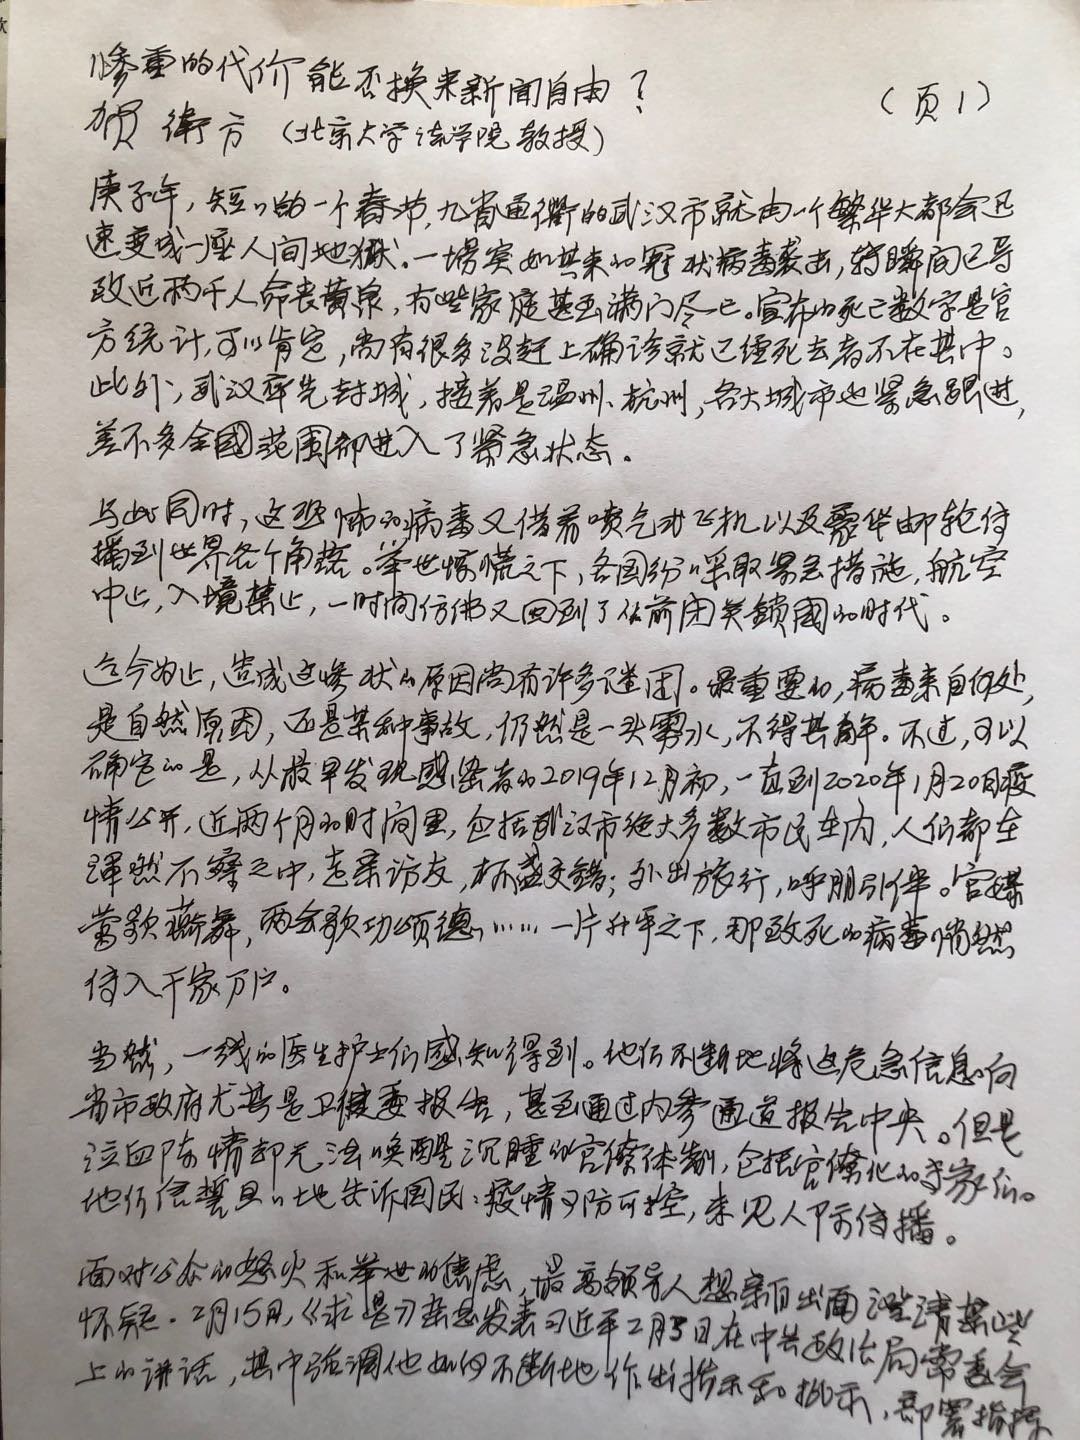 惨重的代价能否换来新闻自由？
（页1）
贺衛方（北京大学法学院教授）
庚子年，短短的一个春节，九省通衢的武汉市就由一个繁华大都会迅
速变成一座人间地獄。一場突如其来的冠状病毒袭击，转瞬间已导
致近两千人命丧黄泉，有些家庭甚至满门尽亡。宣布的死亡数字是官
方统计，可以肯定，尚有很多没赶上确诊就已经死去者不在其中。
此外，武汉率先封城，接着是温州、杭州，各大城市也紧急跟进，
差不多全國范围都进入了紧急状态。
与此同时，这恐怖的病毒又借着喷气式飞机以及豪华邮轮传
播到世界各个角落。举世惊慌之下，各国纷纷采取紧急措施，航空
中止，入境禁止，一时间仿佛又回到了从前闭关鎖國的时代。
迄今为止，造成这惨状的原因尚有许多谜团。最重要的，病毒来自何处，
是自然原因，还是某种事故，仍然是一头雾水，不得其解。不过，可以
确定的是，从最早发现感染者的2019年12月初，一直到2020年1月20日疫
情公开，近两个月的时间里，包括武汉市绝大多数市民在内，人们都在
浑然不察之中，走亲访友，杯盏交错；外出旅行，呼朋引伴。官媒
莺歌燕舞，两会歌功颂德……一片升平之下，那致死的病毒悄然
传入千家万户。
当然，一线的医生护士们感知得到。他们不断地将这危急信息向
当市政府尤其是卫健委报告，甚至通过内参通道报告中央。但是
泣血陈情却无法唤醒沉睡的官僚体制，包括官僚化的专家们。
他们信誓旦旦地告诉国民：疫情可防可控，未见人际传播。
面对公众的怒火和举世的焦虑，最高领导人想亲自出面澄清某些
怀疑。2月15日，《求是》杂志发表习近平2月3日在中共政治局常委会
上的讲话，其中强调他如何不断地作出指示和批示，部署指挥